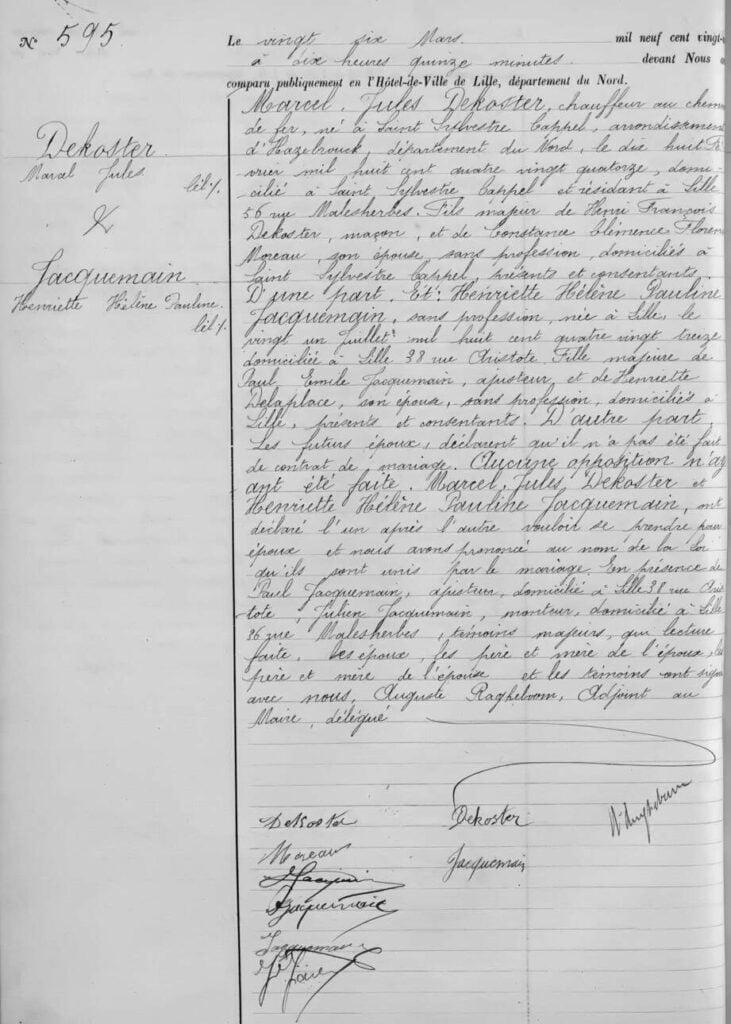 N° 595.
Le vingt six Mars. mil neuf cent vingt-
à dix heures quinze minutes. devant Nous
comparu publiquement en l'Hôtel-de-Ville de Lille, département du Nord.
Dekoster
Marcel Jules
cél^t.
&
Jacquemain
Henriette Hélène Pauline.
cél^t.
Marcel, Jules Dekoster, chauffeur au chemin
de fer, né à Saint Sylvestre Cappel, arrondissement
d'Hazebrouck, département du Nord, le dix huit Fé-
vrier mil huit cent quatre vingt quatorze, domi-
cilié à Saint Sylvestre Cappel et résidant à Lille
56 rue Malesherbes. Fils majeur de Henri François
Dekoster, maçon, et de Constance Clémence Floren
Moreau, son épouse, sans profession, domiciliés à
Saint Sylvestre Cappel, présents et consentants.
D'une part. Et: Henriette Hélène Pauline
Jacquemain, sans profession, née à Lille, le
vingt un Juillet mil huit cent quatre vingt treize
domiciliée à Lille 38 rue Aristote Fille majeure de
Paul, Emile Jacquemain, ajusteur, et de Henriette
Delaplace, son épouse, sans profession, domiciliés à
Lille, présents et consentants. D'autre part.
Les futurs époux, déclarent qu'il n'a pas été fait
de contrat de mariage. Aucune opposition n'ay
ant été faite. Marcel, Jules, Dekoster et
Henriette Hélène Pauline Jacquemain, ont
déclaré l'un après l'autre vouloir se prendre pour
époux et nous avons prononcé au nom de la loi
qu'ils sont unis par le mariage. En présence de
Paul Jacquemain, ajusteur, domicilié à Lille 38 rue Aris
tote, Julien Jacquemain, monteur, domicilié à Lille
36 rue Malesherbes, témoins majeurs, qui lecture
faite, les époux, les père et mère de l'époux, les
père et mère de l'épouse et les témoins ont signé
avec nous, Auguste Ragheboom, Adjoint au
Maire, délégué
Dekoster Dekoster
Moreau Jacquemain
Jacquemain
Jacquemain